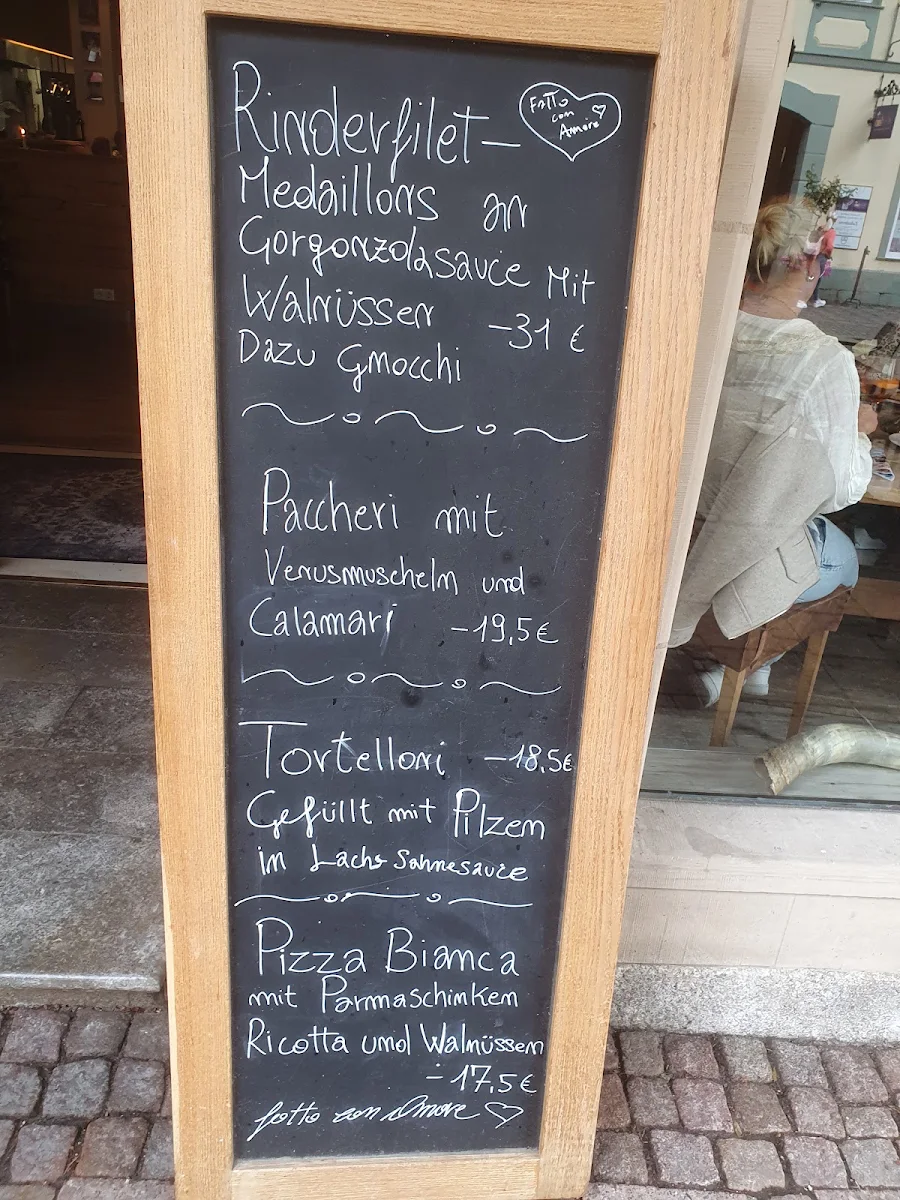 Rinderfilet-
Fatto
con
Amore
Medaillons an
Gorgonzolasauce Mit
Walnüssen -31 €
Dazu Gnocchi
Paccheri mit
Venusmuscheln und
Calamari -19,5€
Tortelloni -18,5€
Gefüllt mit Pilzen
in Lachs Sahnesauce
Pizza Bianca
mit Parmaschinken
Ricotta und Walnüssen
-17,5€
fatto con Amore